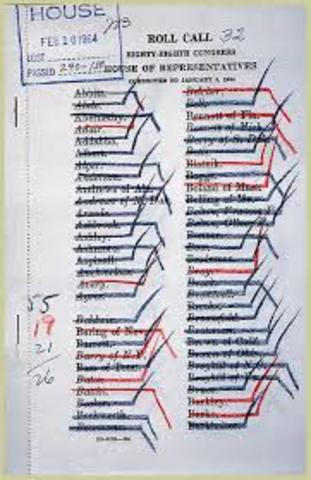 HOUSE
FEB 10 1964
LOST
PASSED 290-130
ROLL CALL 32
EIGHTY-EIGHTH CONGRESS
HOUSE OF REPRESENTATIVES
Abbitt.
Abele.
Abernethy.
Adair.
Addabbo.
Albert.
Alger.
Anderson.
Andrews of Ala.
Andrews of N. Dak.
Arends.
Ashbrook.
Ashley.
Ashmore.
Aspinall.
Auchincloss.
Avery.
Ayres.
Baldwin.
Baring of Nev.
Barrett.
Barry of N.Y.
Bass of Tenn.
Bates.
Battin.
Becker.
Beckworth.
Belcher.
Bell.
Bennett of Fla.
Bennett of Mich.
Berry of S. Dak.
Betts.
Blatnik.
Boggs.
Boland of Mass.
Bolling of Mo.
Bow.
Brademas.
Bray.
Brock.
Bromwell.
Brooks.
Broomfield.
Brotzman.
Brown of Calif.
Brown of Ohio.
Broyhill of N.C.
Buckley.
Burke.
Burkhalter.
55
19
21
26